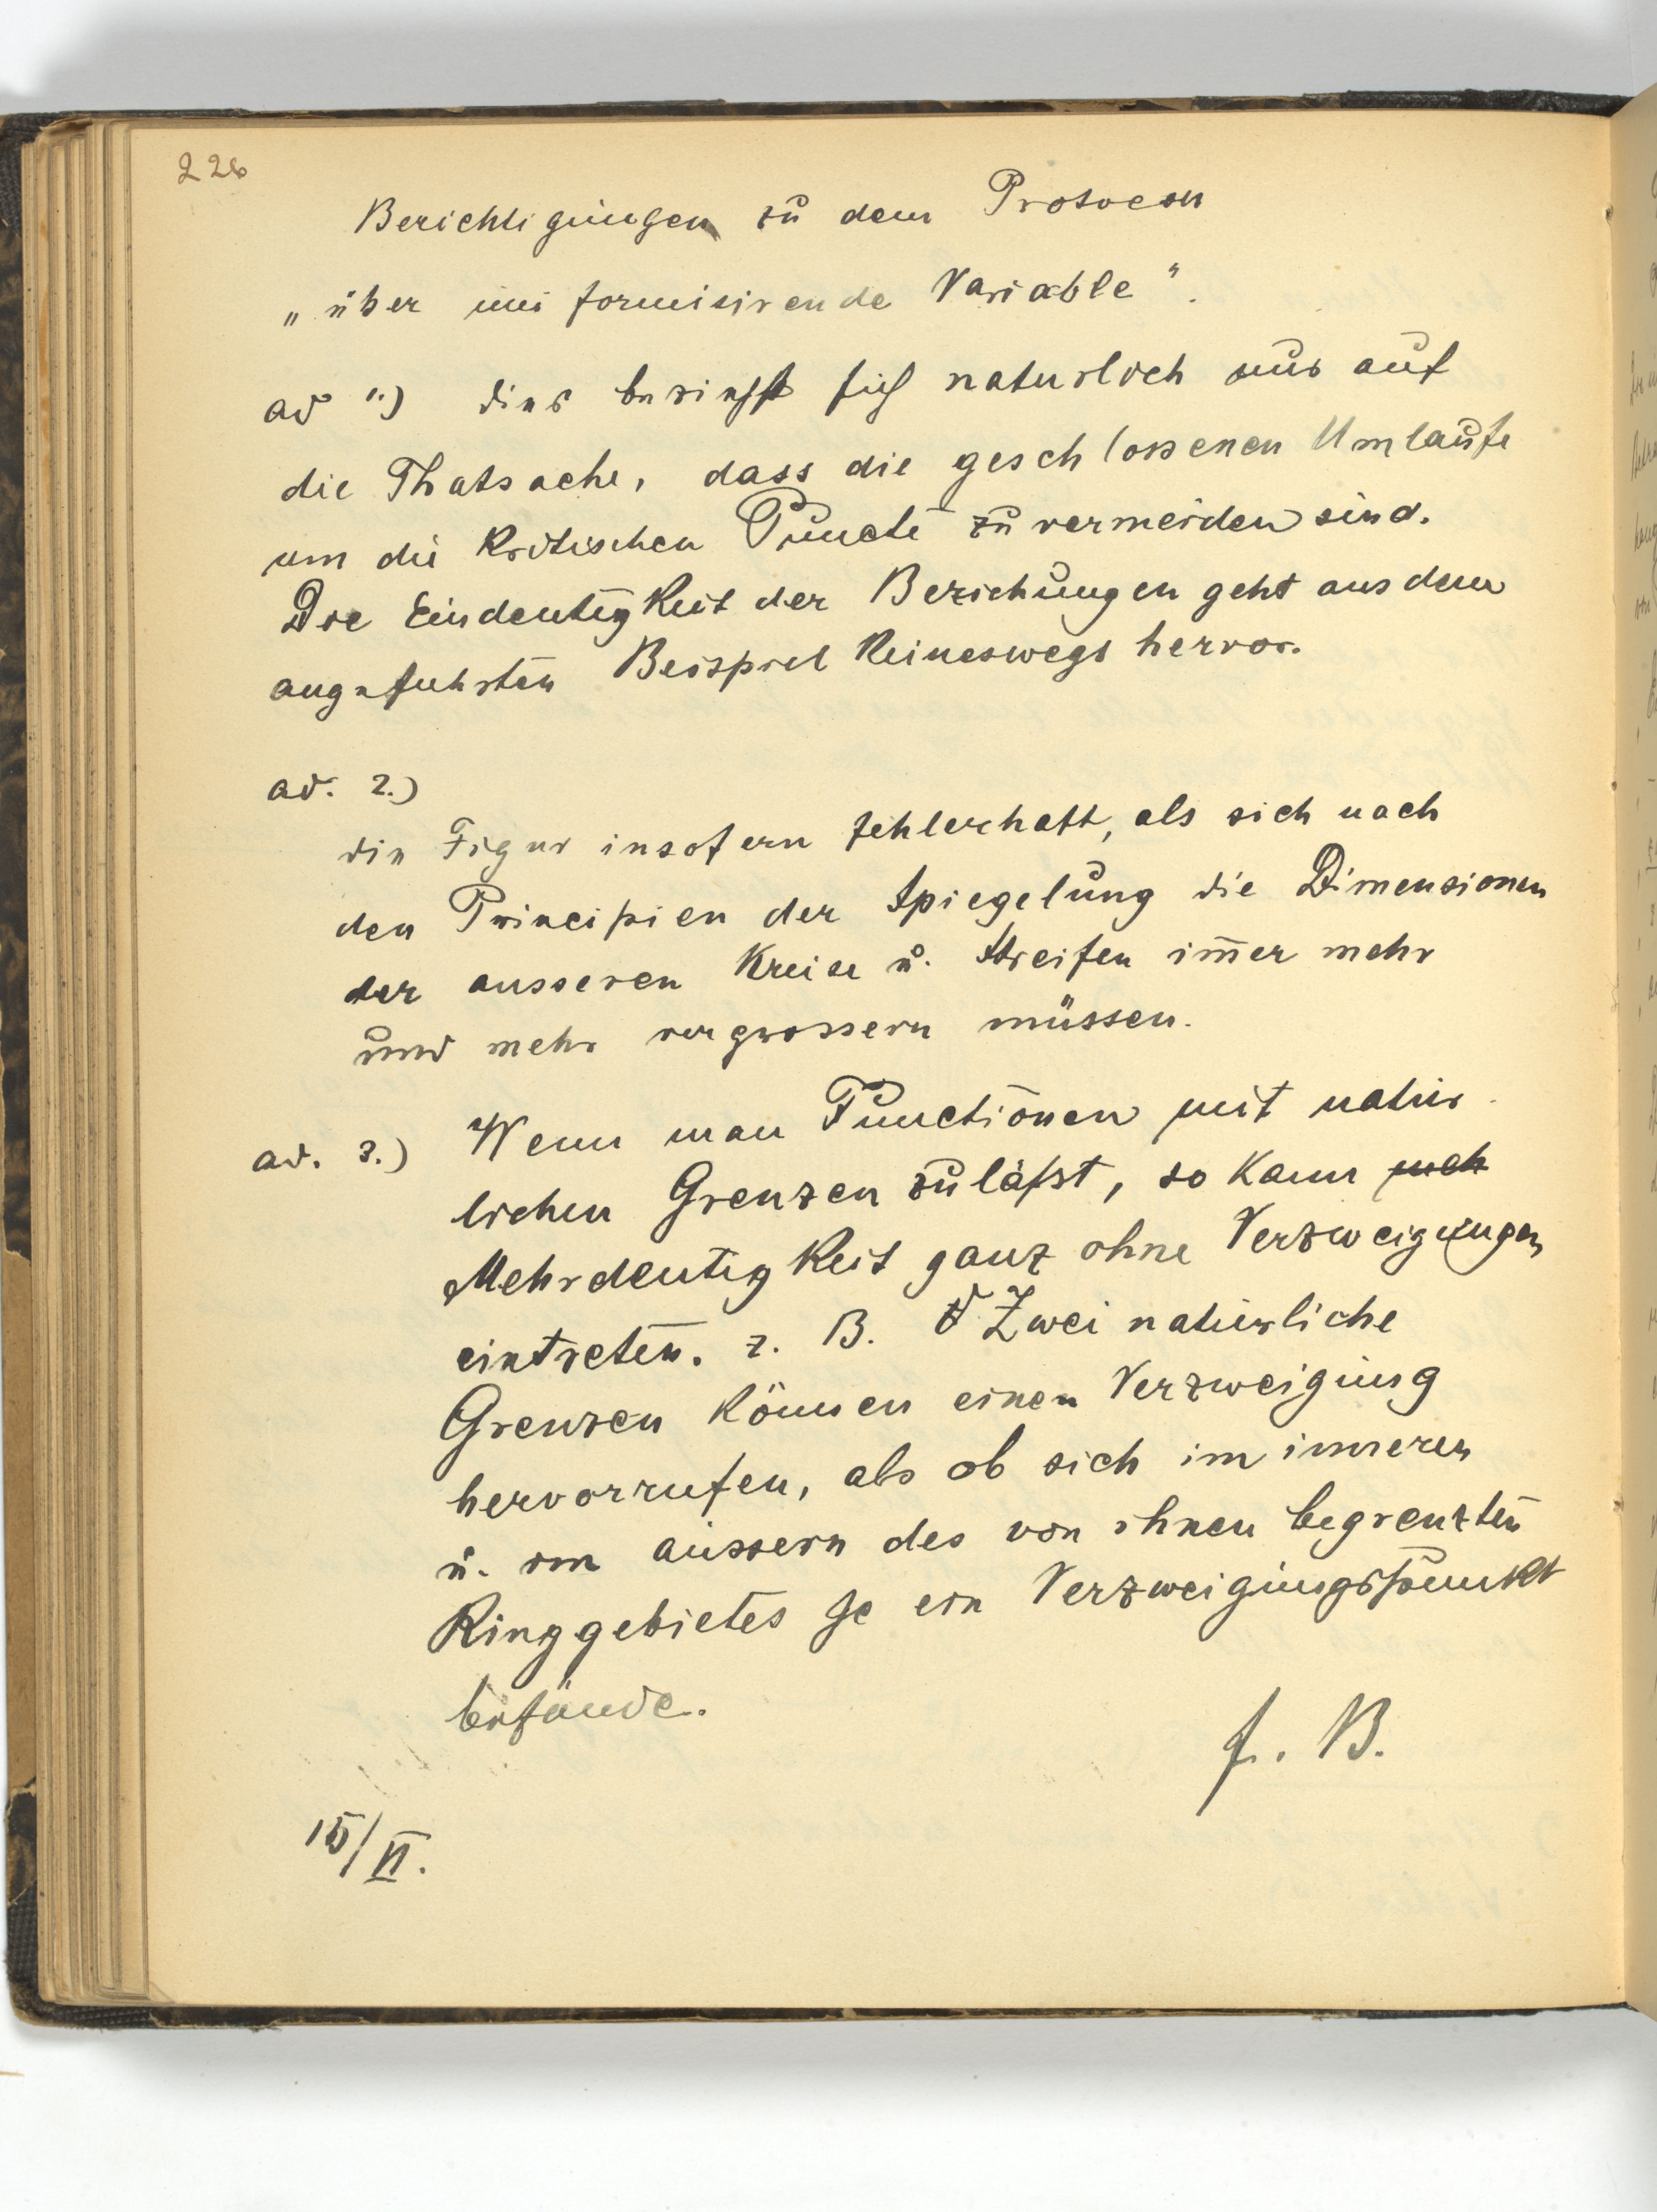 226
Berichtigungen zu dem Protocoll
„über uniformisirende Variable“.
ad 1.) dies bezieht sich naturlich nur auf
die Thatsache, dass die geschlossenen Umlaufe
um die kritischen Puncte zu vermeiden sind.
Die Eindeutigkeit der Beziehungen geht aus dem
angefuhrten Beispiel keineswegs hervor.
ad. 2.)
die Figur insofern fehlerhaft, als sich nach
den Principien der Spiegelung die Dimensionen
der ausseren Kreise u. Streifen im̅er mehr
und mehr vergrossern müssen.
ad. 3.) Wenn man Functionen mit natür
lichen Grenzen zuläſst, so kann
Mehrdeutigkeit ganz ohne Verzweigungen
eintreten. z. B. Zwei natürliche
Grenzen können einen Verzweigung
hervorrufen, als ob sich im inneren
u. im äussern des von ihnen begrenzten
Ringgebietes je ein Verzweigungspunkt
befände.
f. B.
15/VI.